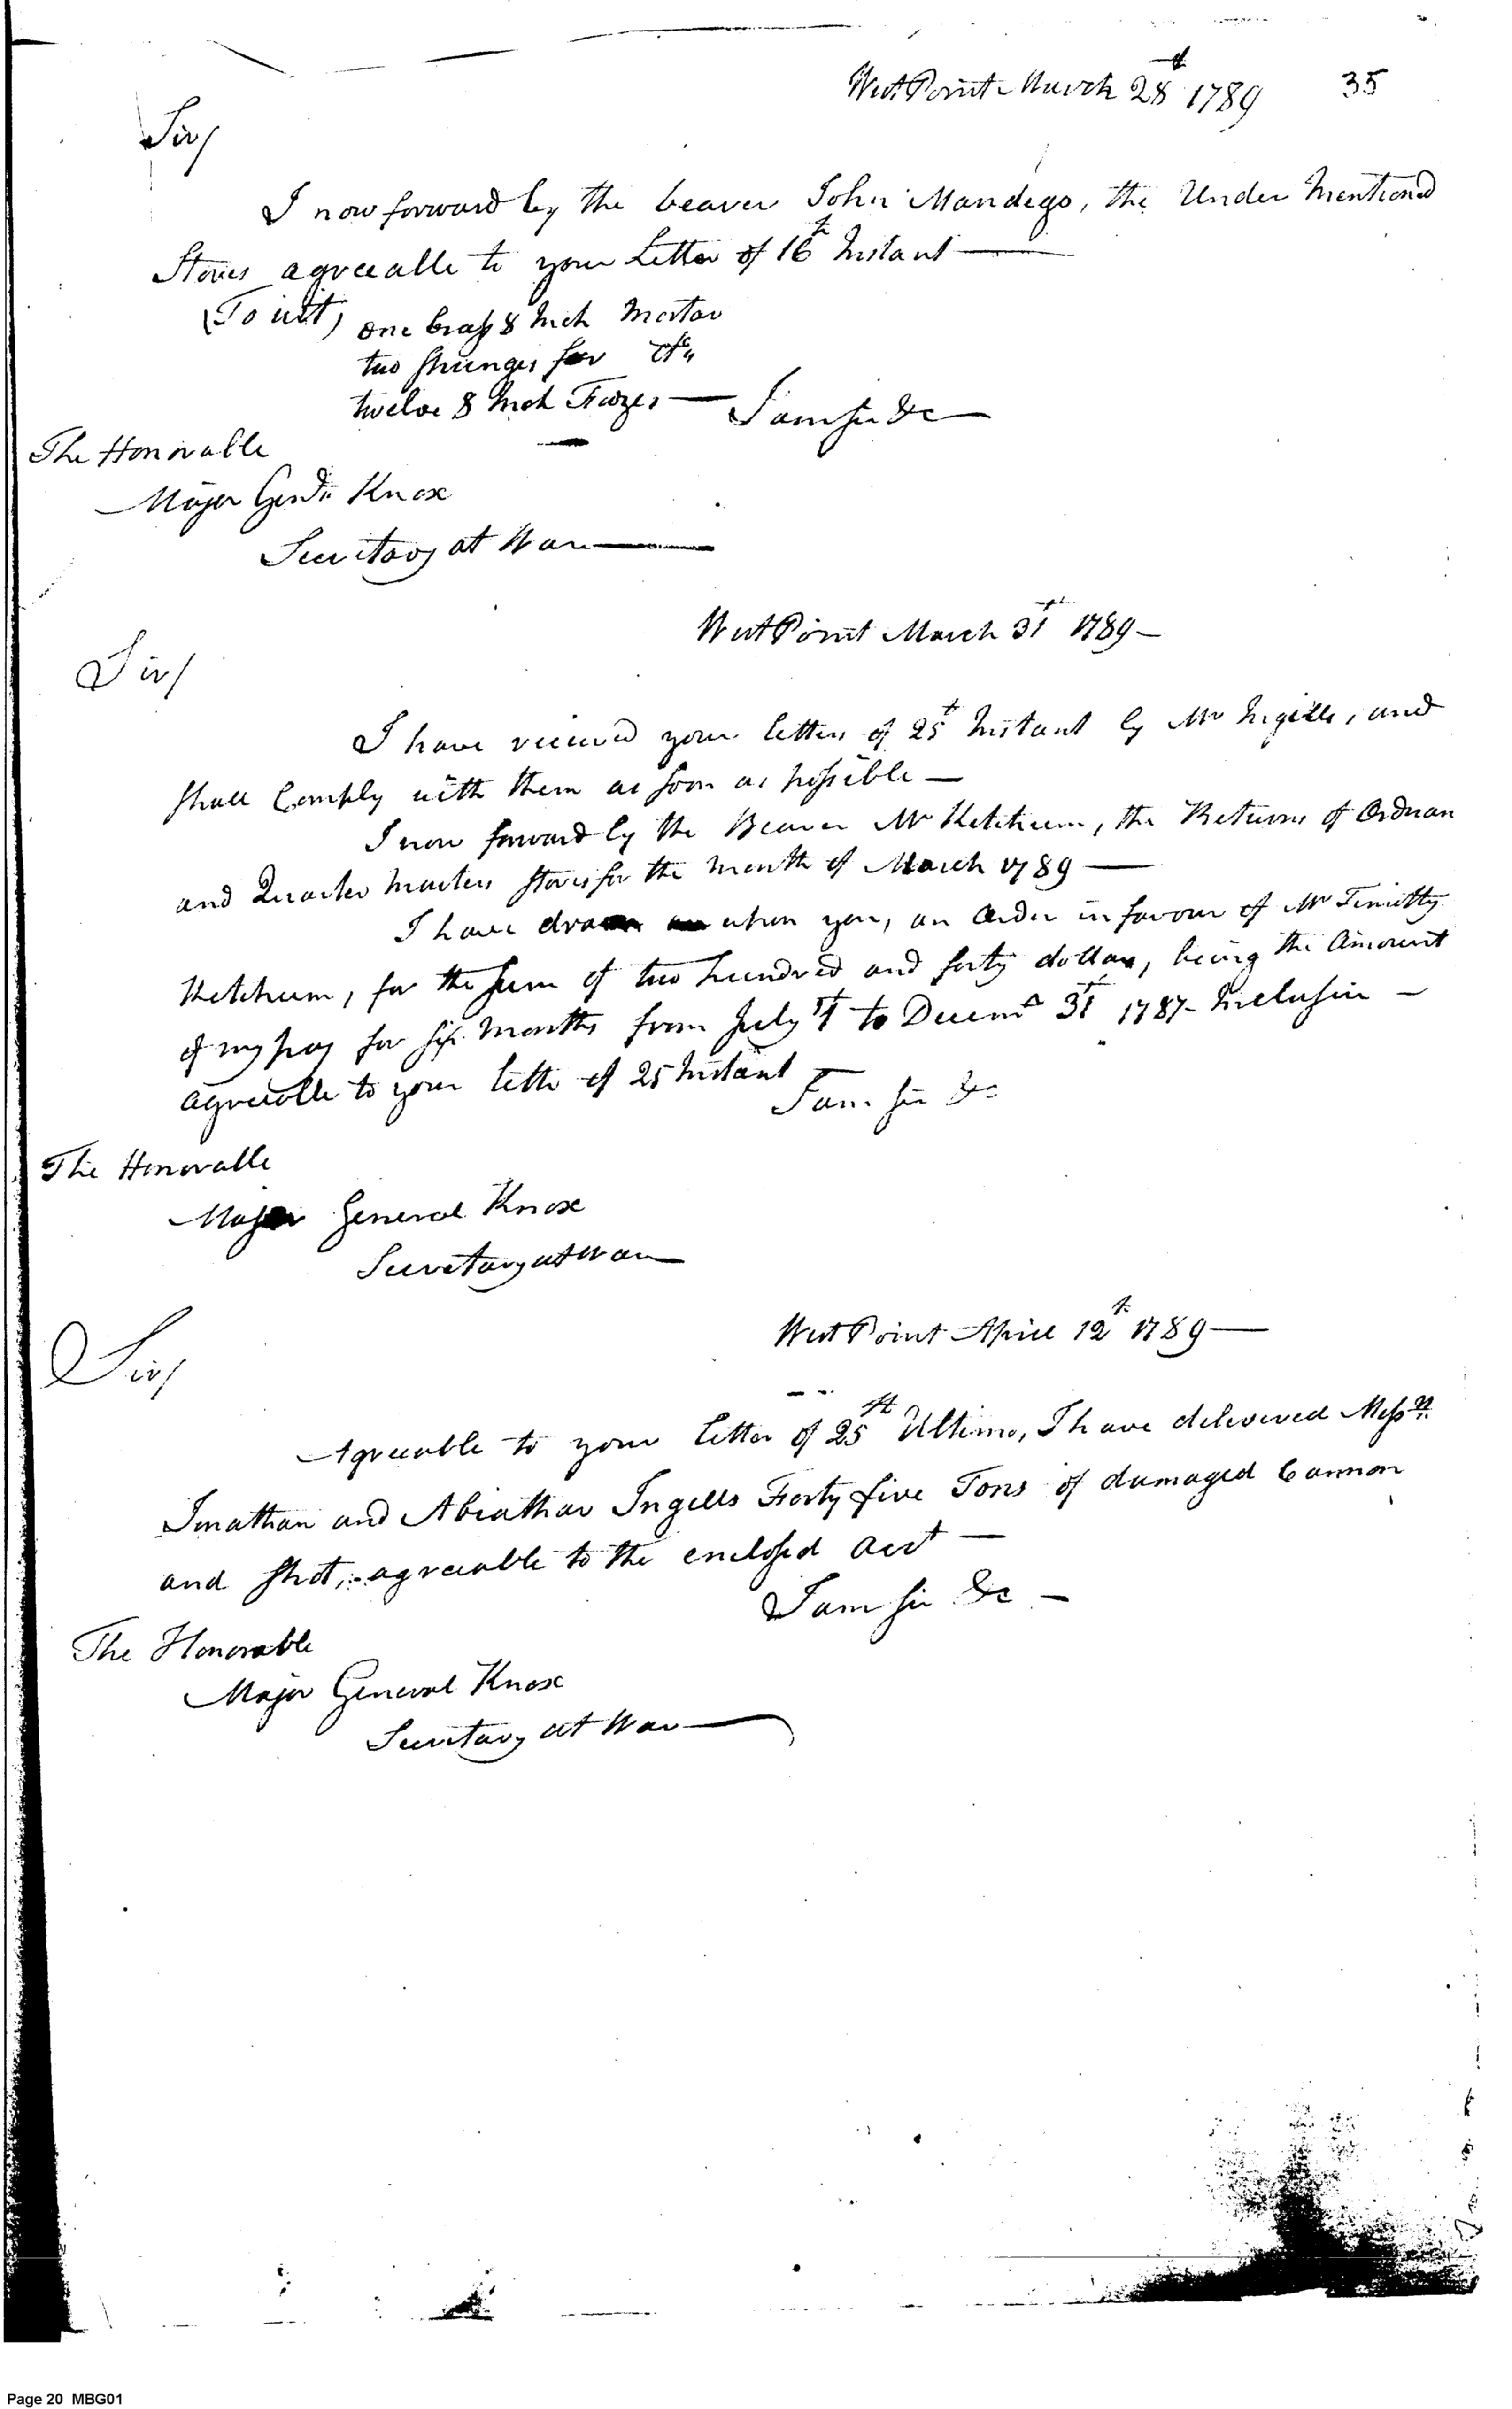 West Point March 28th 1789 35
Sir/
I now forward by the bearer John Mandego, the Under Mentiond
Stores agreeable to your Letter of 16th Instant —
(To wit) one brass 8 Inch Mortar
two spunges for do
twelve 8 Inch Fuzes — I am sir &c —
The Honorable
Major Genl Knox
Secretary at War —
West Point March 31st 1789 —
Sir/
I have received your letters of 25th Instant by Mr Ingills, and
shall Comply with them as soon as possible —
I now forward by the Bearer Mr Ketchum, the Returns of Ordnan
and Quarter Masters stores for the month of March 1789 —
I have drawn upon you, an order in favour of Mr Timothy
Ketchum, for the sum of two hundred and forty dollars, being the Amount
of my pay for six months from July 1st to Decemr 31st 1787 - Inclusive —
agreeable to your lette of 25 Instant —
I am sir &c
The Honorable
Major General Knox
Secretary at War —
West Point April 12th 1789 —
Sir/
Agreeable to your letter of 25th Ultimo, I have delivered Messrs
Jonathan and Abiathar Ingells Forty five Tons of damaged Cannon
and shot, agreeable to the enclosed acct —
I am sir &c —
The Honorable
Major General Knox
Secretary at War —
Page 20 MBG01